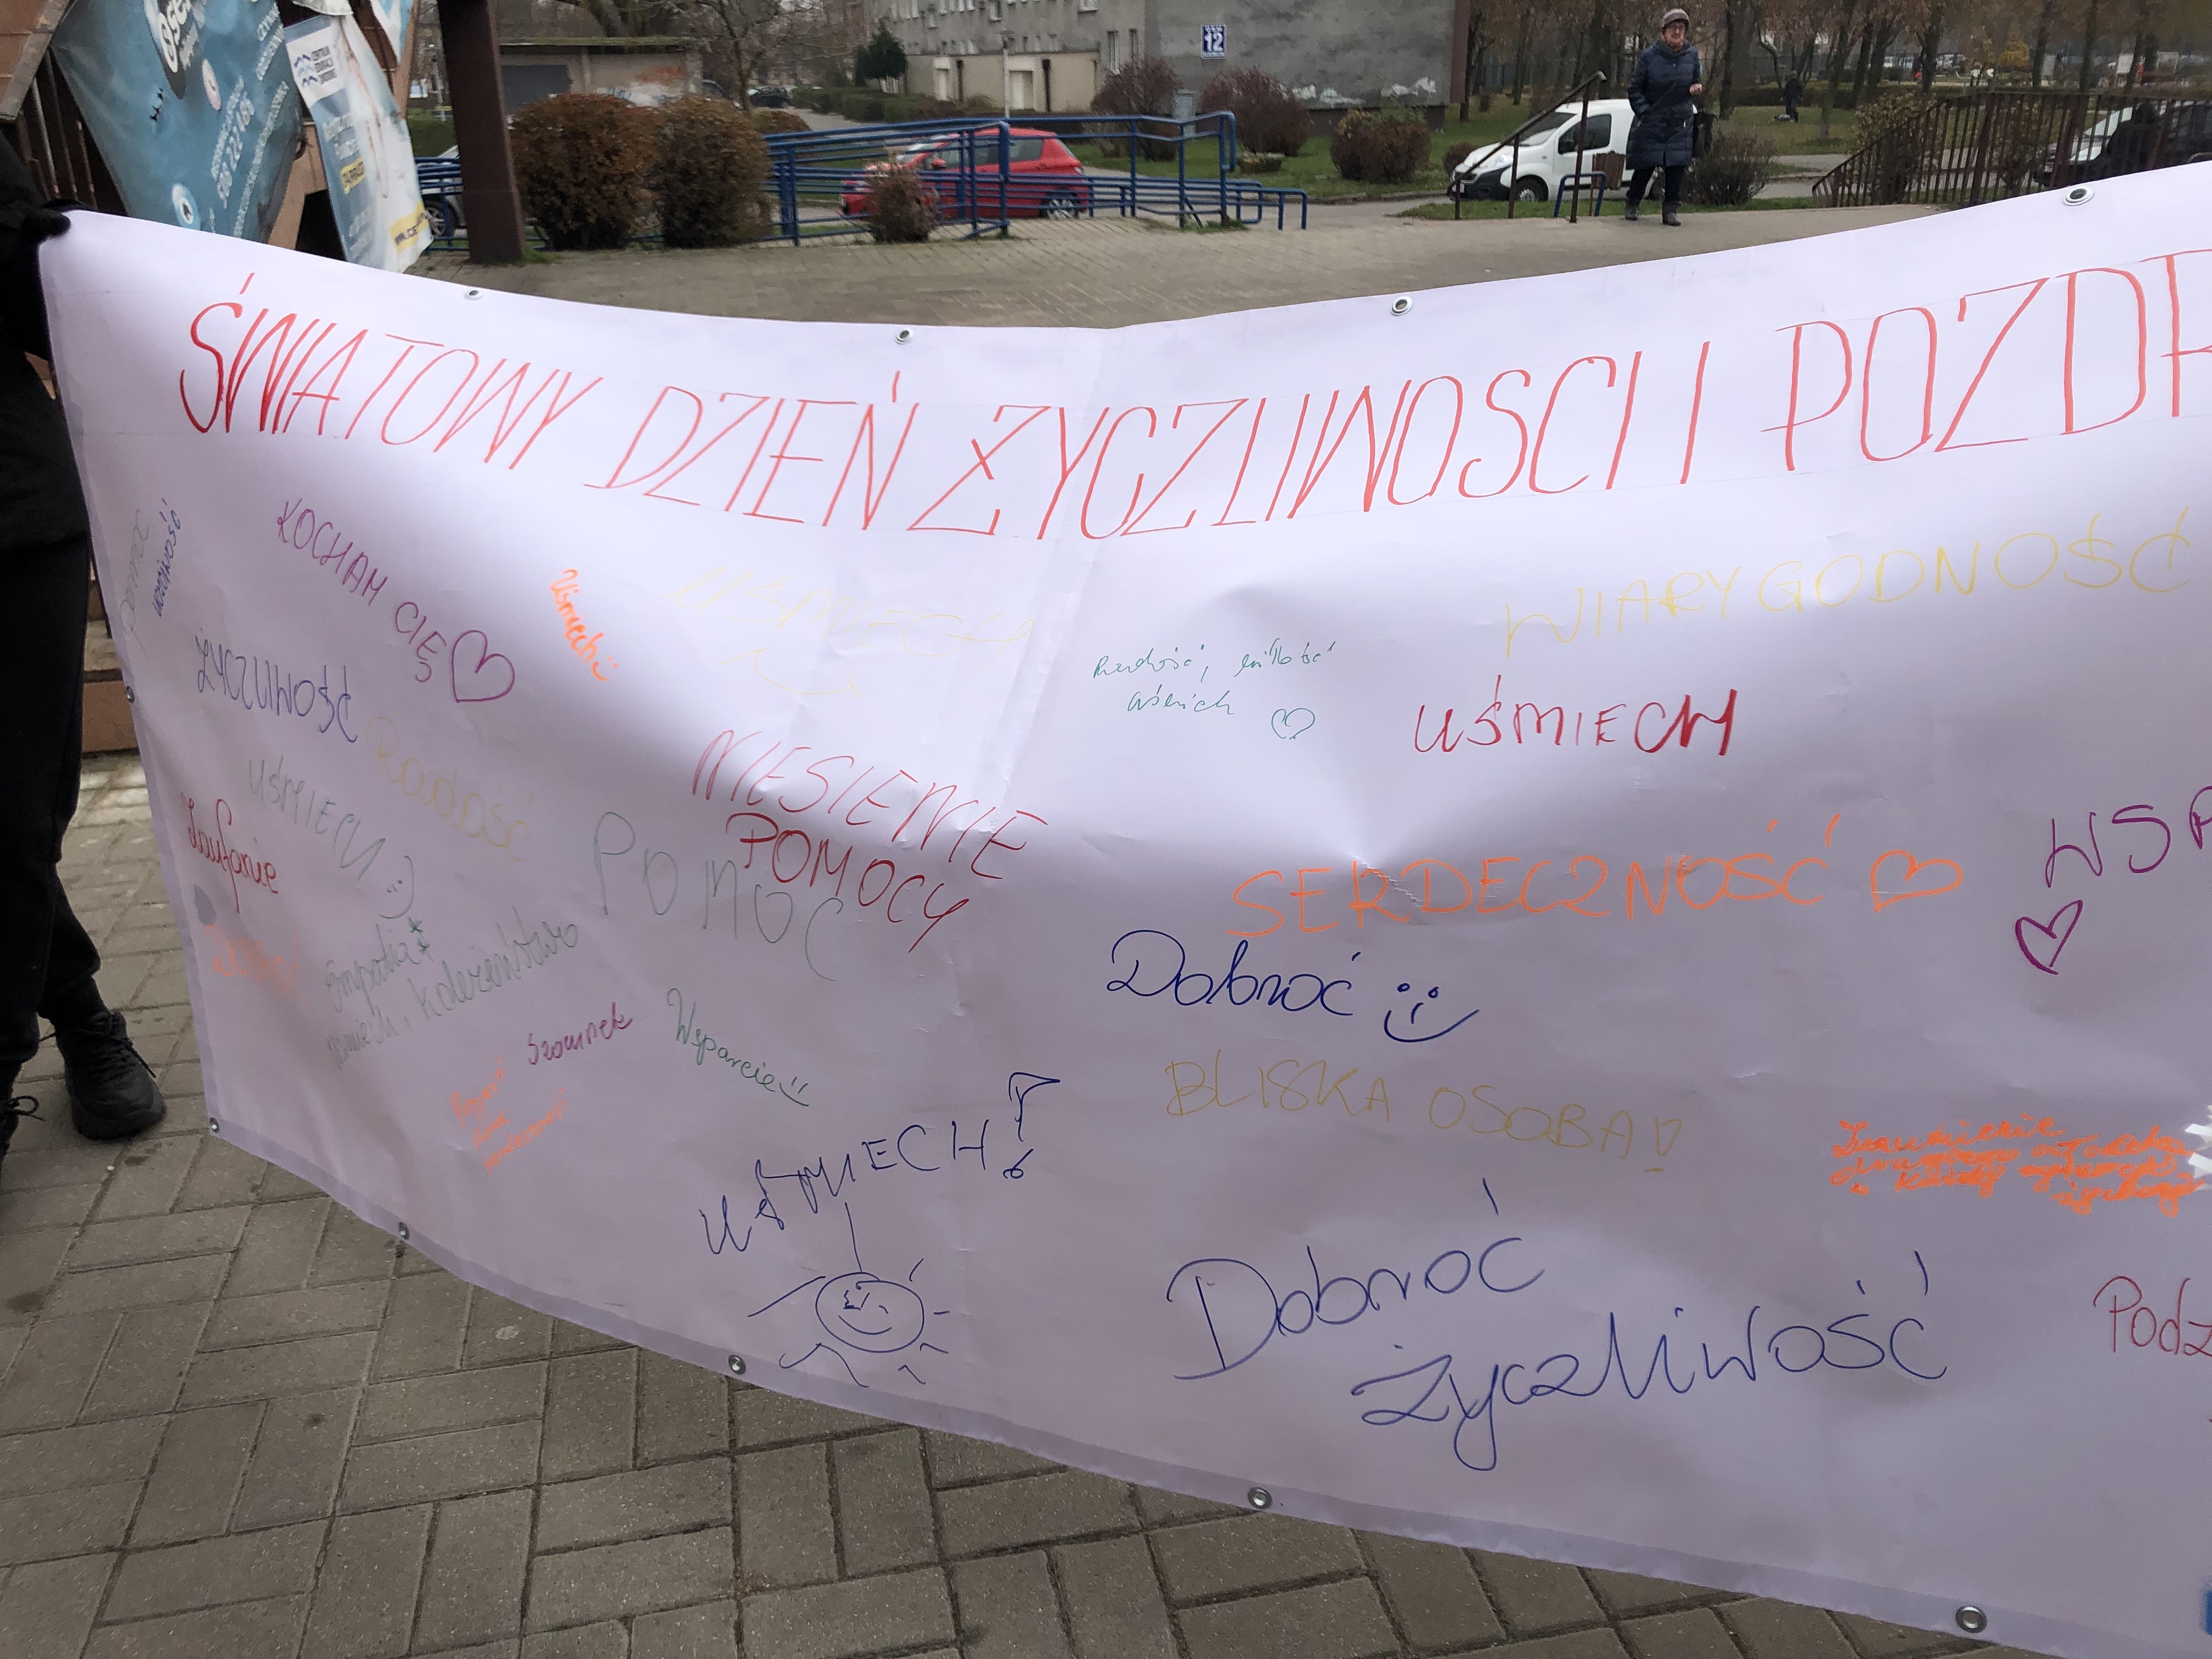 12
ŚWIATOWY DZIEŃ ŻYCZLIWOSCI I POZDR
uczciwość
KOCHAM CIĘ
Uśmiech
UŚMIECH
WIARYGODNOŚĆ
Radość, miłość
uśmiech
UŚMIECH
ŻYCZLIWOŚĆ
Radość
UŚMIECH :)
Zaufanie
NIESIENIE
POMOCY
POMOC
SERDECZNOŚĆ
WSP
Dobroć
Empatia
uśmiech, koleżeństwo
Szacunek
Wsparcie
BLISKA OSOBA!
UŚMIECH!
Zrozumienie
Dobroć
Życzliwość
Podz